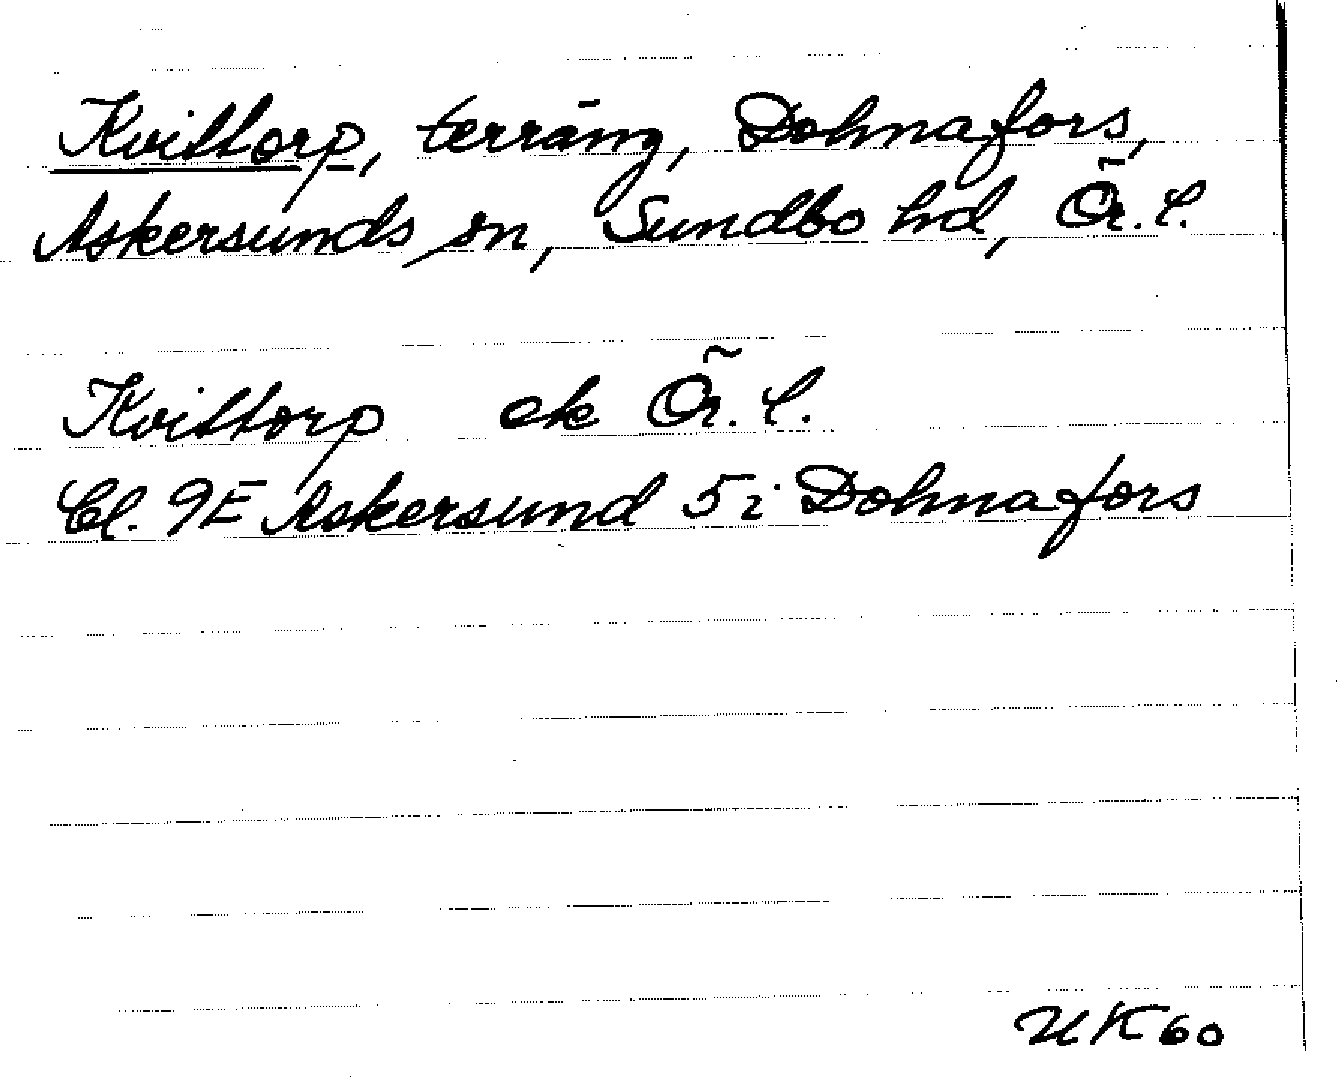 Kvittorp, terräng, Dohnafors,
Askersunds sn, Sundbo hd, Ör. l.
Kvittorp ek Ör. l.
Bl. 9E Askersund 5i Dohnafors
UK60